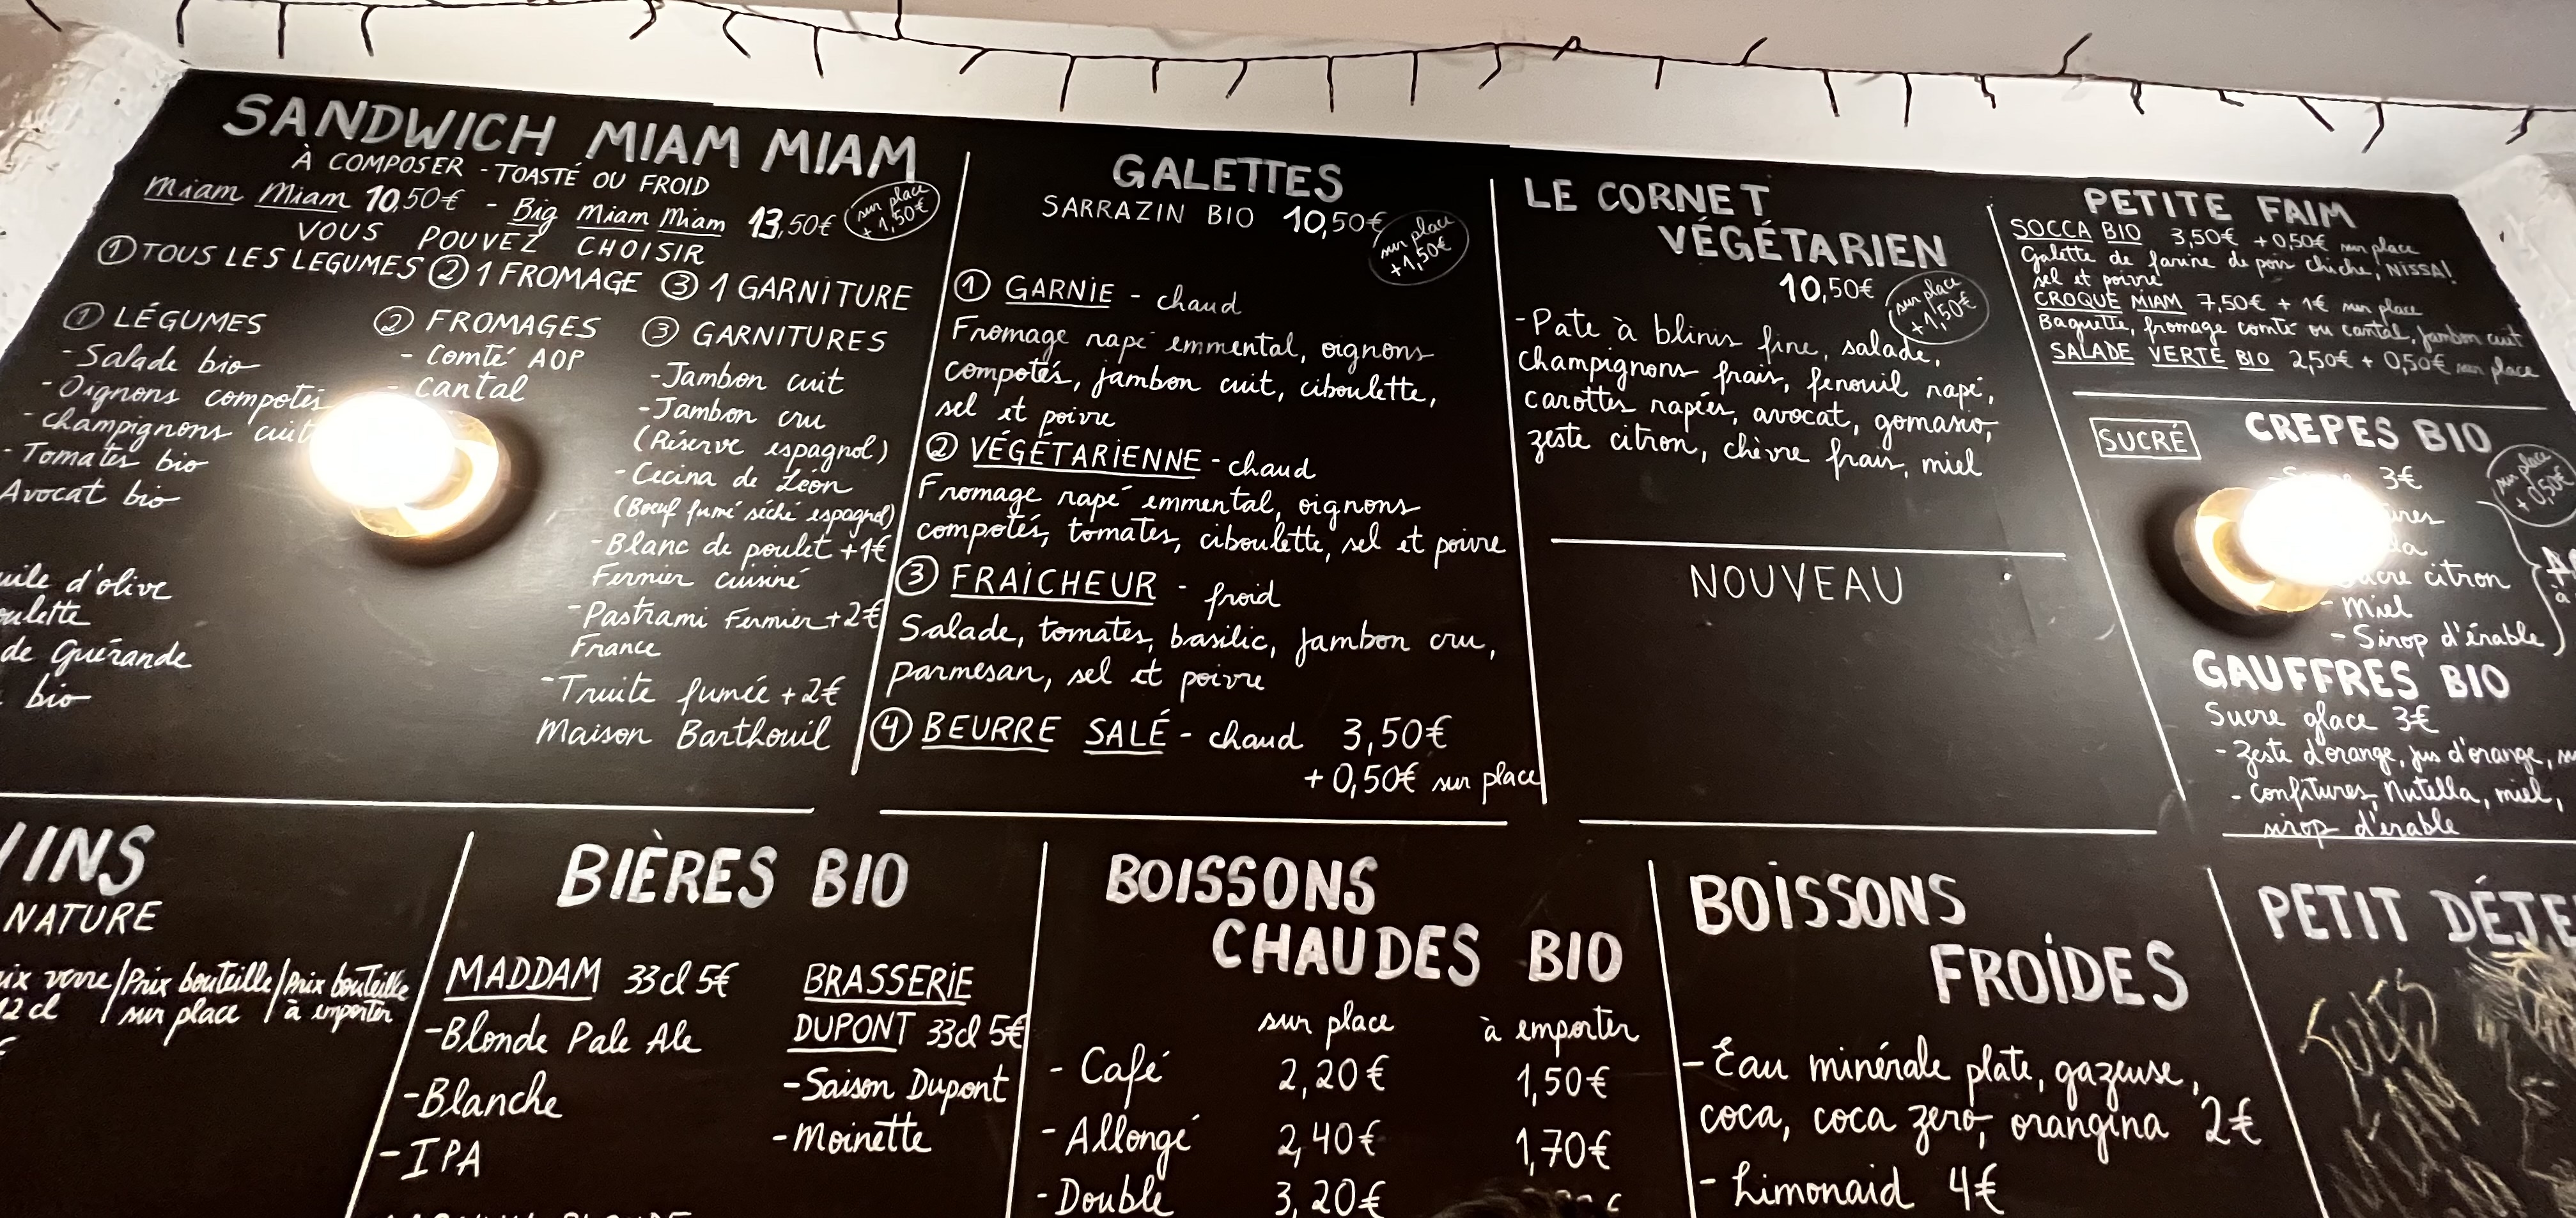 SANDWICH MIAM MIAM
À COMPOSER - TOASTÉ OU FROID
Miam Miam 10,50€ - Big Miam Miam 13,50€
sur place
+ 1,50€
VOUS POUVEZ CHOISIR
① TOUS LES LEGUMES ② 1 FROMAGE ③ 1 GARNITURE
① LÉGUMES
- Salade bio
- Oignons compotés
- champignons cuit
- Tomates bio
Avocat bio
d'olive
de Guérande
bio
② FROMAGES
- Comté AOP
- Cantal
③ GARNITURES
- Jambon cuit
- Jambon cru
(Réserve espagnol)
- Cecina de Leon
(Bœuf fumé séché espagnol)
- Blanc de poulet +1€
Fermier cuisiné
- Pastrami Fermier +2€
France
- Truite fumée +2€
Maison Barthouil
GALETTES
SARRAZIN BIO 10,50€
sur place
+1,50€
① GARNIE - chaud
Fromage rapé emmental, oignons
compotés, jambon cuit, ciboulette,
sel et poivre
② VÉGÉTARIENNE - chaud
Fromage rapé emmental, oignons
compotés, tomates, ciboulette, sel et poivre
③ FRAICHEUR - froid
Salade, tomates, basilic, jambon cru,
parmesan, sel et poivre
④ BEURRE SALÉ - chaud 3,50€
+ 0,50€ sur place
LE CORNET
VÉGÉTARIEN
10,50€
sur place
+1,50€
- Pate à blinis fine, salade,
champignons frais, fenouil rapé,
carottes rapées, avocat, gomasio,
zeste citron, chèvre frais, miel
NOUVEAU
PETITE FAIM
SOCCA BIO 3,50€ +0,50€ sur place
Galette de farine de pois chiche, NISSA!
sel et poivre
CROQUE MIAM 7,50€ + 1€ sur place
Baguette, fromage comté ou cantal, jambon cuit
SALADE VERTE BIO 2,50€ + 0,50€ sur place
SUCRÉ
CREPES BIO
sur place
+ 0,50€
3€
citron
- Miel
- Sirop d'érable
GAUFFRES BIO
Sucre glace 3€
- Zeste d'orange, jus d'orange,
- confitures, Nutella, miel,
sirop d'érable
NATURE
verre / Prix bouteille / Prix bouteille
12 cl / sur place / à emporter
BIÈRES BIO
MADDAM 33cl 5€
- Blonde Pale Ale
- Blanche
- IPA
BRASSERIE
DUPONT 33cl 5€
- Saison Dupont
- Moinette
BOISSONS
CHAUDES BIO
sur place à emporter
- Café 2,20€ 1,50€
- Allongé 2,40€ 1,70€
- Double 3,20€
BOISSONS
FROIDES
- Eau minérale plate, gazeuse,
coca, coca zero, orangina 2€
- Limonaid 4€
PETIT